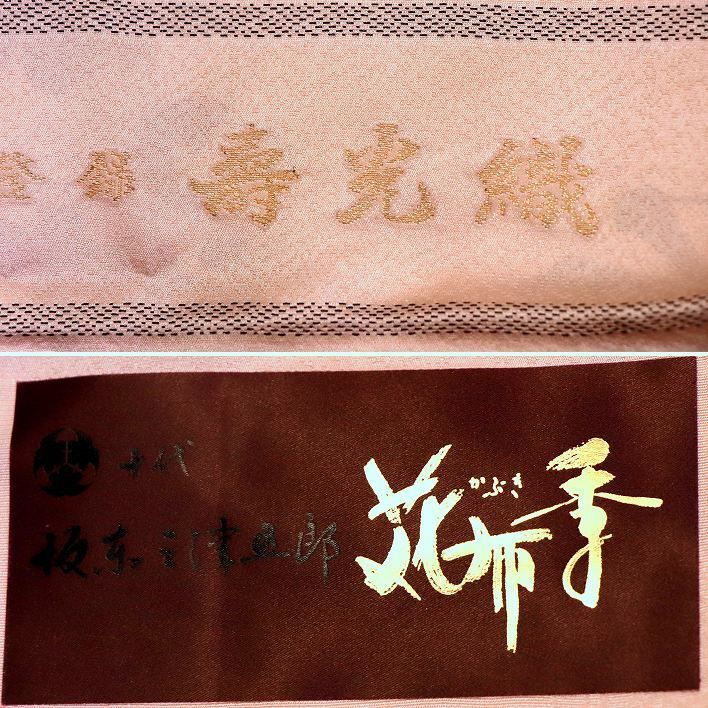 登録 壽光織
十代
坂東三津五郎
かぶき
花布季